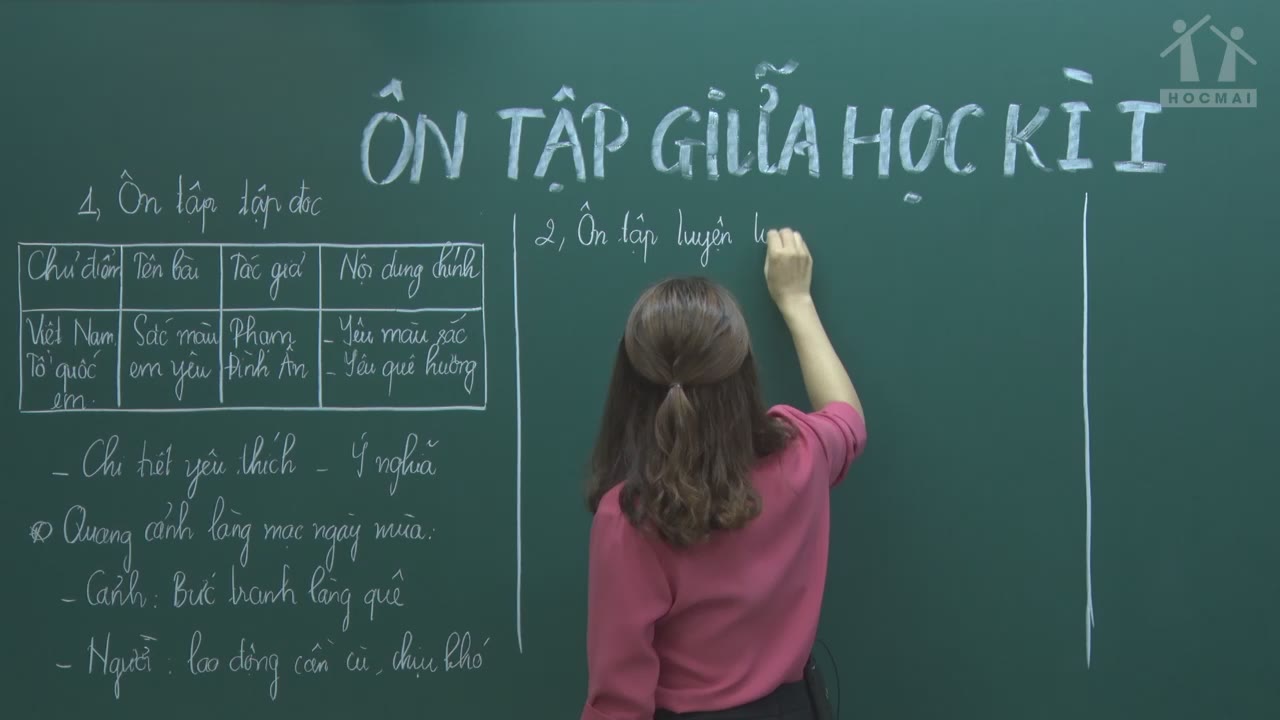 HOCMAI
ÔN TẬP GIỮA HỌC KÌ I
1, Ôn tập tập đọc
Chủ điểm Tên bài Tác giả Nội dung chính
Việt Nam Tổ quốc em. Sắc màu em yêu Phạm Đình Ân - Yêu màu sắc - Yêu quê hương
- Chi tiết yêu thích - Ý nghĩa
Quang cảnh làng mạc ngày mùa:
- Cảnh: Bức tranh làng quê
- Người: lao động cần cù, chịu khó
2, Ôn tập luyện